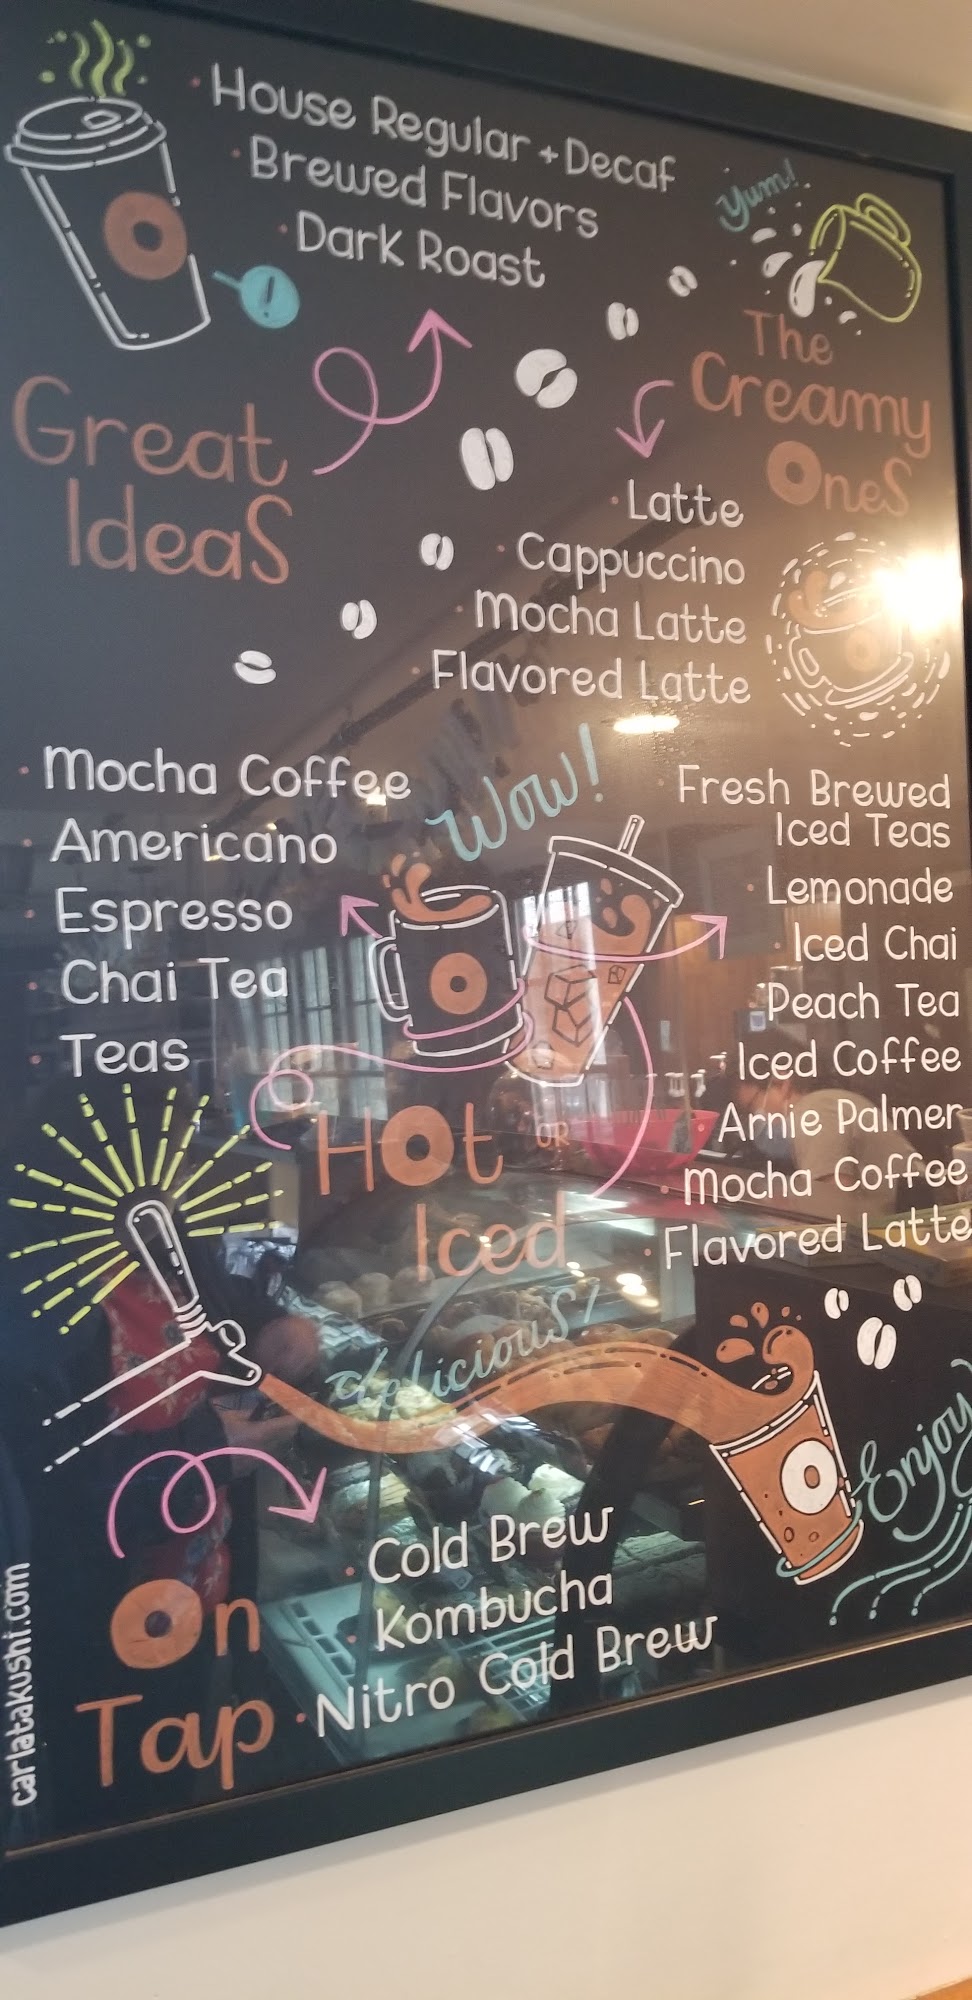 House Regular + Decaf
Brewed Flavors
Dark Roast
Great
Ideas
Yum!
The
Creamy
Ones
Latte
Cappuccino
Mocha Latte
Flavored Latte
Mocha Coffee
Americano
Espresso
Chai Tea
Teas
Wow!
Fresh Brewed
Iced Teas
Lemonade
Iced Chai
Peach Tea
Iced Coffee
Arnie Palmer
Mocha Coffee
Flavored Latte
Hot OR
Iced
delicious!
Enjoy
On
Tap
Cold Brew
Kombucha
Nitro Cold Brew
carlatakushi.com